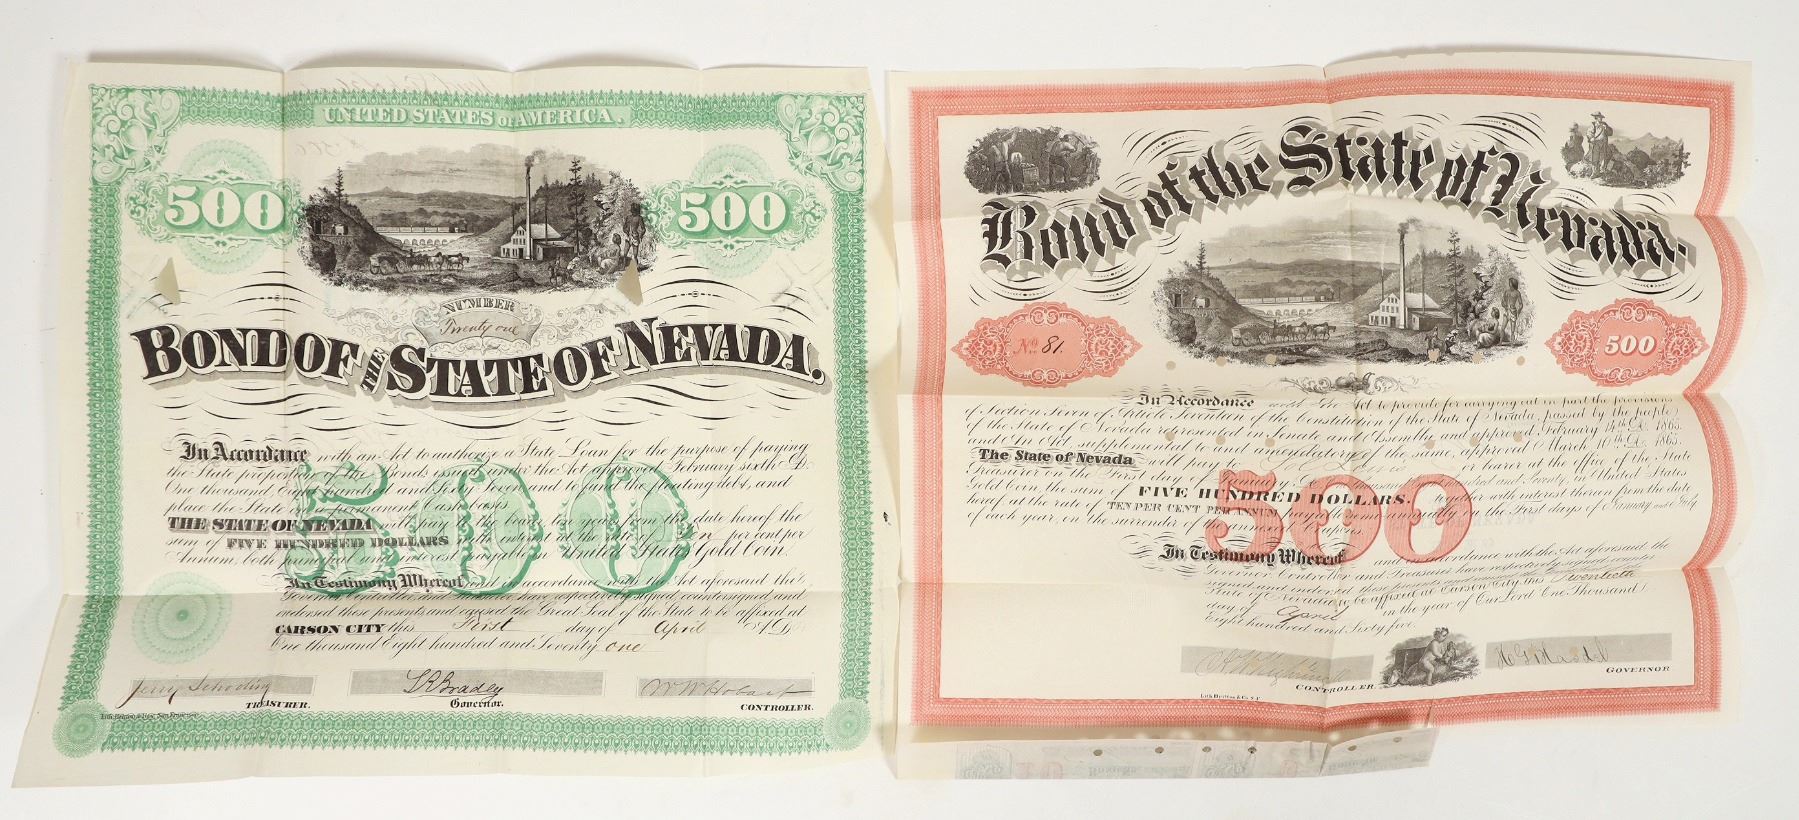 UNITED STATES OF AMERICA.
500
500
NUMBER
Twenty one
BOND OF THE STATE OF NEVADA.
In Accordance with an Act to authorize a State Loan for the purpose of paying
the State proportion of the Bonds issued under the Act approved February sixth A.D.
One thousand Eight hundred and Sixty Seven and to fund the floating debt, and
place the State on a permanent Cash basis
THE STATE OF NEVADA will pay to the bearer ten years from the date hereof the
sum of FIVE HUNDRED DOLLARS with interest at the rate of per cent per
Annum, both principal and interest payable in United States Gold Coin.
500
In Testimony Whereof and in accordance with the Act aforesaid the
Governor have respectively signed countersigned and
endorsed these presents and caused the Great Seal of the State to be affixed at
CARSON CITY this First day of April A.D.
One thousand Eight hundred and Seventy one
Jerry Schooling
TREASURER.
L R Bradley
Governor.
W W Hobart
CONTROLLER.
Bond of the State of Nevada.
No. 81.
500
In Accordance with An Act to provide for carrying out in part the provisions
of Section Seven of Article Seventeen of the Constitution of the State of Nevada, passed by the people
of the State of Nevada represented in Senate and Assembly and approved February 14th A.D. 1865.
and An Act supplemental to and amendatory of the same, approved March 10th A.D. 1865.
The State of Nevada will pay to or bearer at the office of the State
Treasurer on the First day of in United States
Gold Coin, the sum of FIVE HUNDRED DOLLARS. together with interest thereon from the date
hereof at the rate of TEN PER CENT PER ANNUM on the First days of January and July
of each year, on the surrender of the annexed Coupons.
500
In Testimony Whereof and in accordance with the Act aforesaid the
Governor Controller and Treasurer have respectively signed
signed and endorsed these
State of Nevada to be affixed at Carson City this Twentieth
day of April in the year of Our Lord One Thousand
Eight hundred and Sixty five.
CONTROLLER.
GOVERNOR
Lith Britton & Co. S.F.